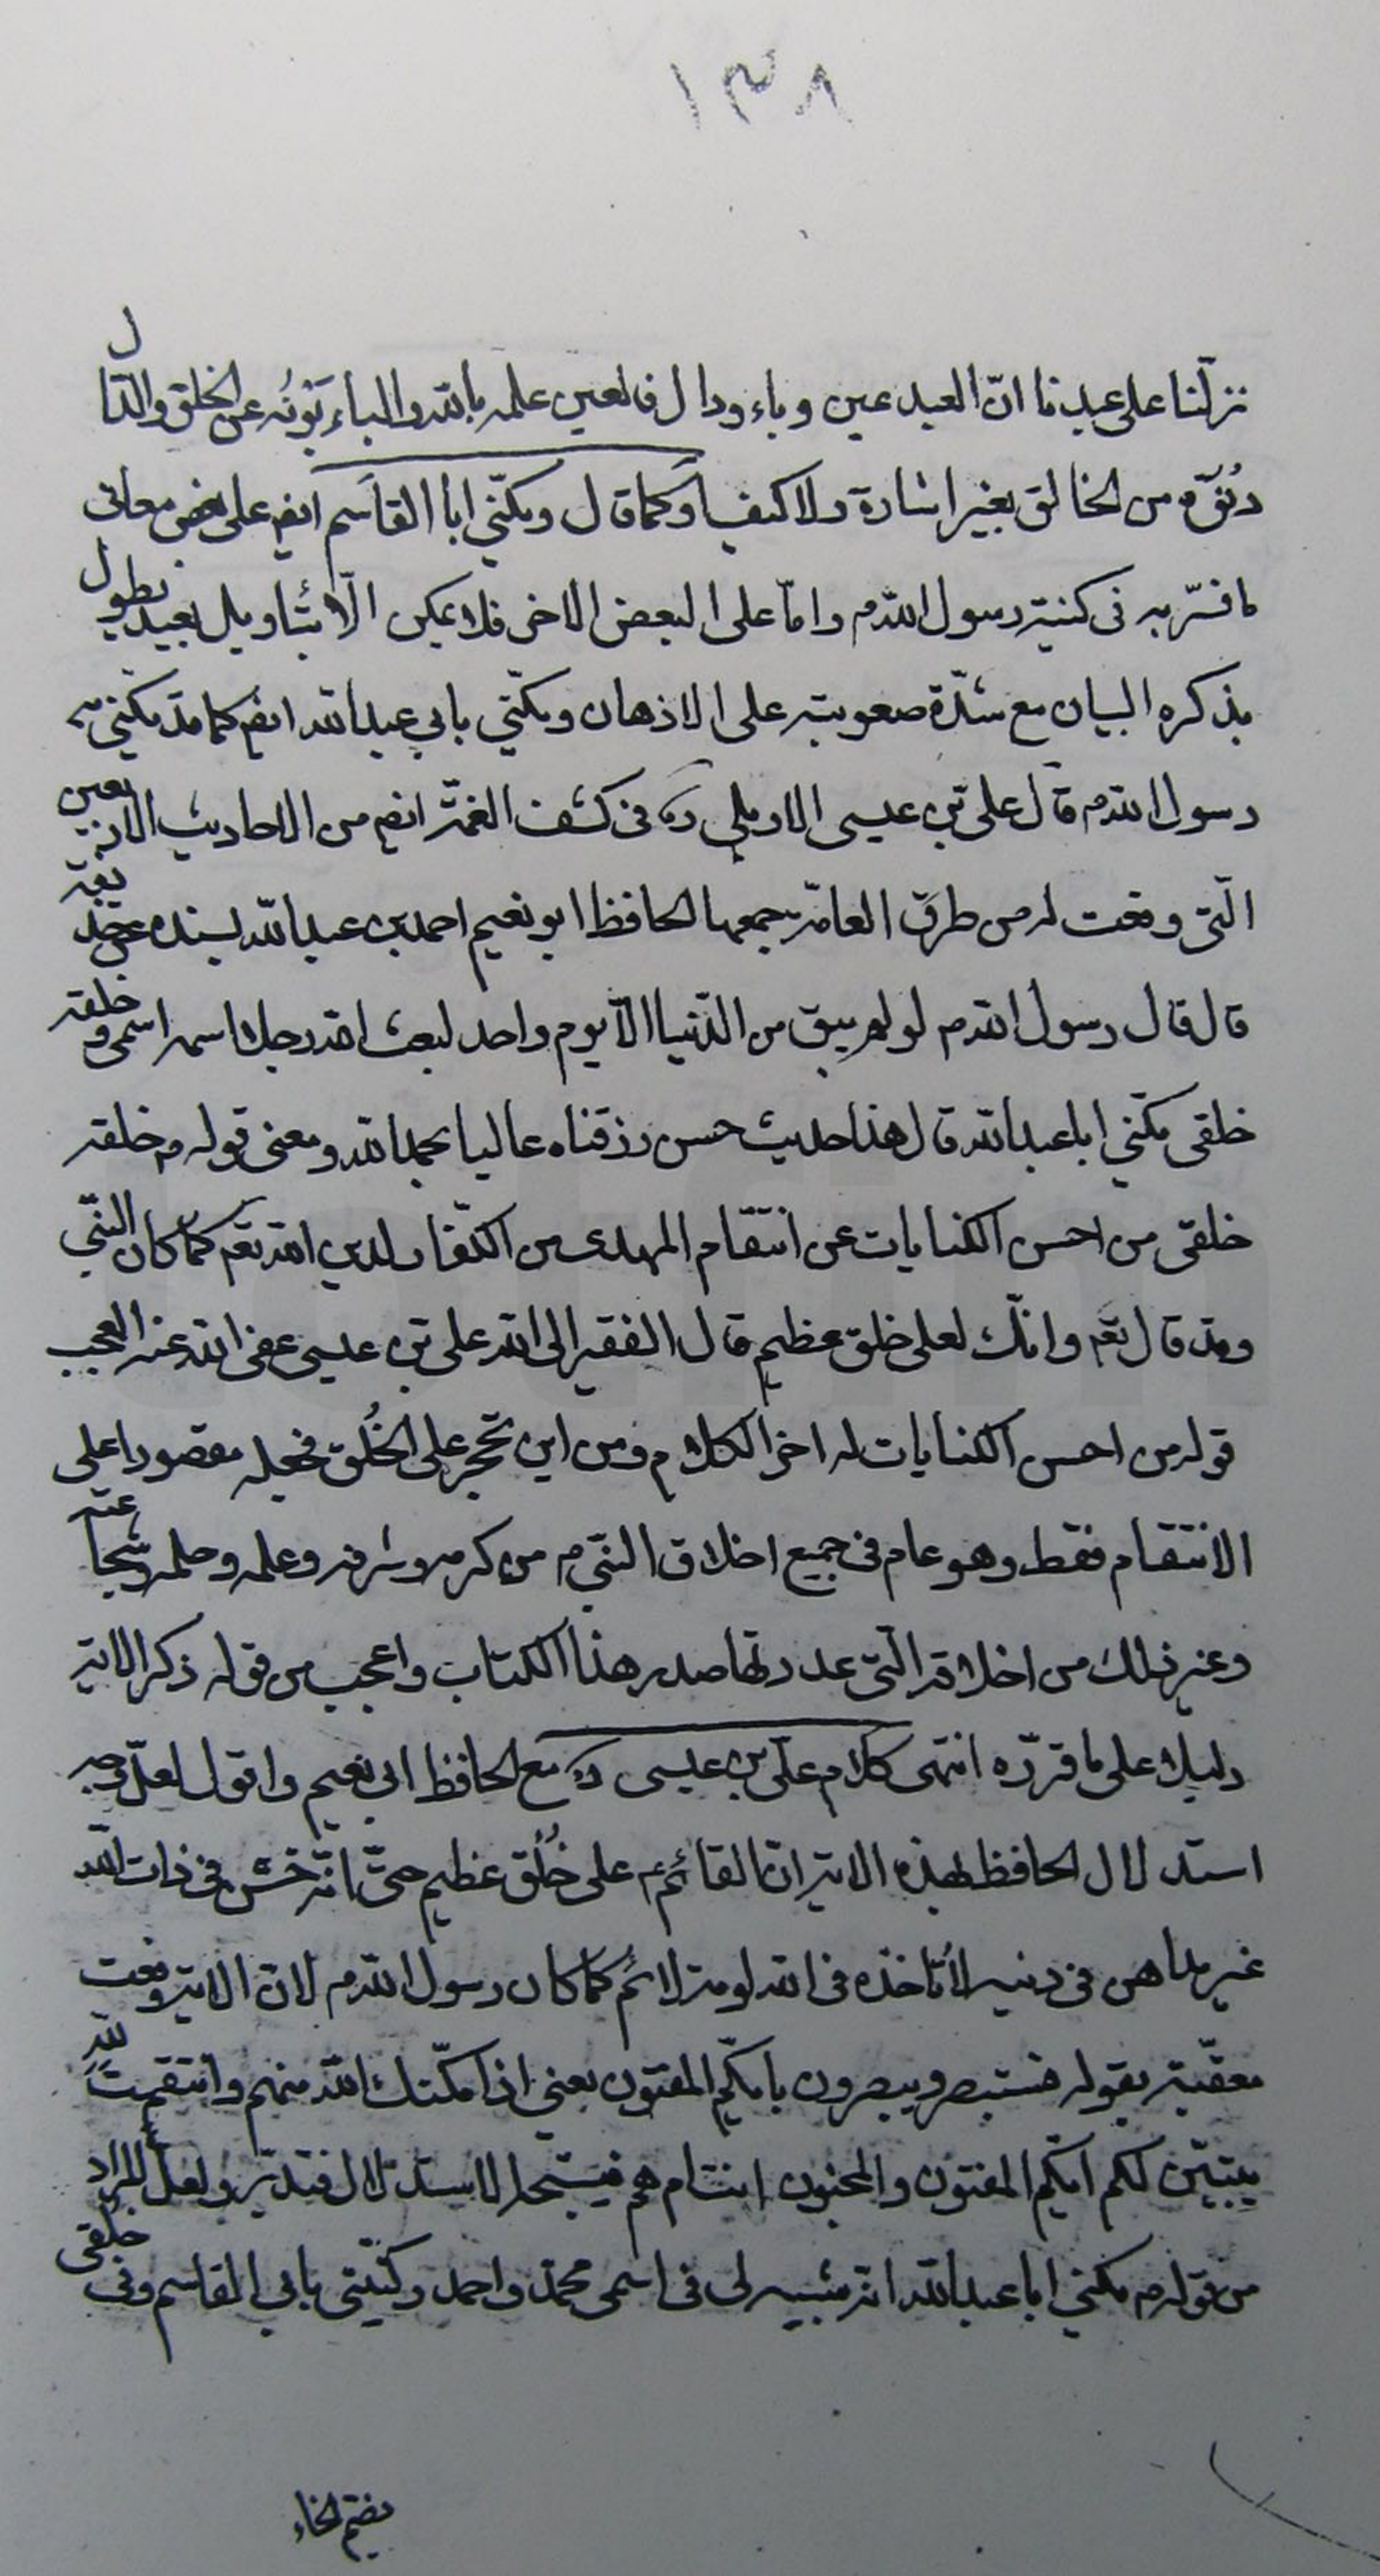 ١٣٨
نزلنا على عبدنا انّ العبد عين وباء ودال فالعين علمه بالله والباء بَوْنُه عن الخلق والدّال
دُنُوّه من الخالق بغير اشارة ولا كيف او كما قال ويكنّى ابا القاسم ايضم على بعض معانى
ما فسّر به فى كنية رسول الله م وامّا على البعض الاخر فلا يمكن الّا بتاويل بعيد يطول
بذكره البيان مع شدّة صعوبته على الاذهان ويكنّى بابي عبدالله ايضم كما قد يكنّى به
رسول الله م قال على بن عيسى الاربلي ره فى كشف الغمّة ايضم من الاحاديث الاربعين
الّتى وقعت له من طرق العامّة جمعها الحافظ ابو نعيم احمد بن عبدالله بسنده عن حذيفة
قال قال رسول الله م لو لم يبق من الدّنيا الّا يوم واحد لبعث الله رجلا اسمه اسمى وخلقه
خلقى يكنّي ابا عبدالله قال هذا حديث حسن رزقناه عاليا بحمد الله ومعنى قوله م خلقه
خلقى من احسن الكنايات عن انتقام المهدى من الكفّار لدين الله تعم كما كان النبّي
وقد قال تعم وانّك لعلى خلق عظيم قال الفقير الى الله على بن عيسى عفى الله عنه العجب
قوله من احسن الكنايات له اخر الكلام ومن اين تحجر على الخُلق فجعله مقصورا على
الانتقام فقط وهو عام فى جميع اخلاق النبّي م من كرمه وشرفه وعلمه وحلمه وشجاعته
وغير ذلك من اخلاقه الّتى عددتها صدر هذا الكتاب واعجب من قوله ذكر الاية
دليلا على ما قرّره انتهى كلام على بن عيسى ره مع الحافظ ابي نعيم واقول لعلّ وجه
استدلال الحافظ بهذه الاية انّ القائم ع على خُلُق عظيم حتّى انّه خشن فى ذات الله
غير مداهن فى دينه لا تاخذه فى الله لومة لائم كما كان رسول الله م لانّ الاية وقعت
معقّبة بقوله فستبصر ويبصرون بايّكم المفتون يعني اذا مكّنك الله منهم وانتقمت لله
يتبيّن لكم ايّكم المفتون والمجنون انتم ام هم فيتّجه الاستدلال فتدبّر ولعلّ المراد
من قوله م يكنّي ابا عبدالله انه شبيه لى فى اسمى محمّد واحمد وكنيتى بابي القاسم وفى خلقى
بضم الخاء